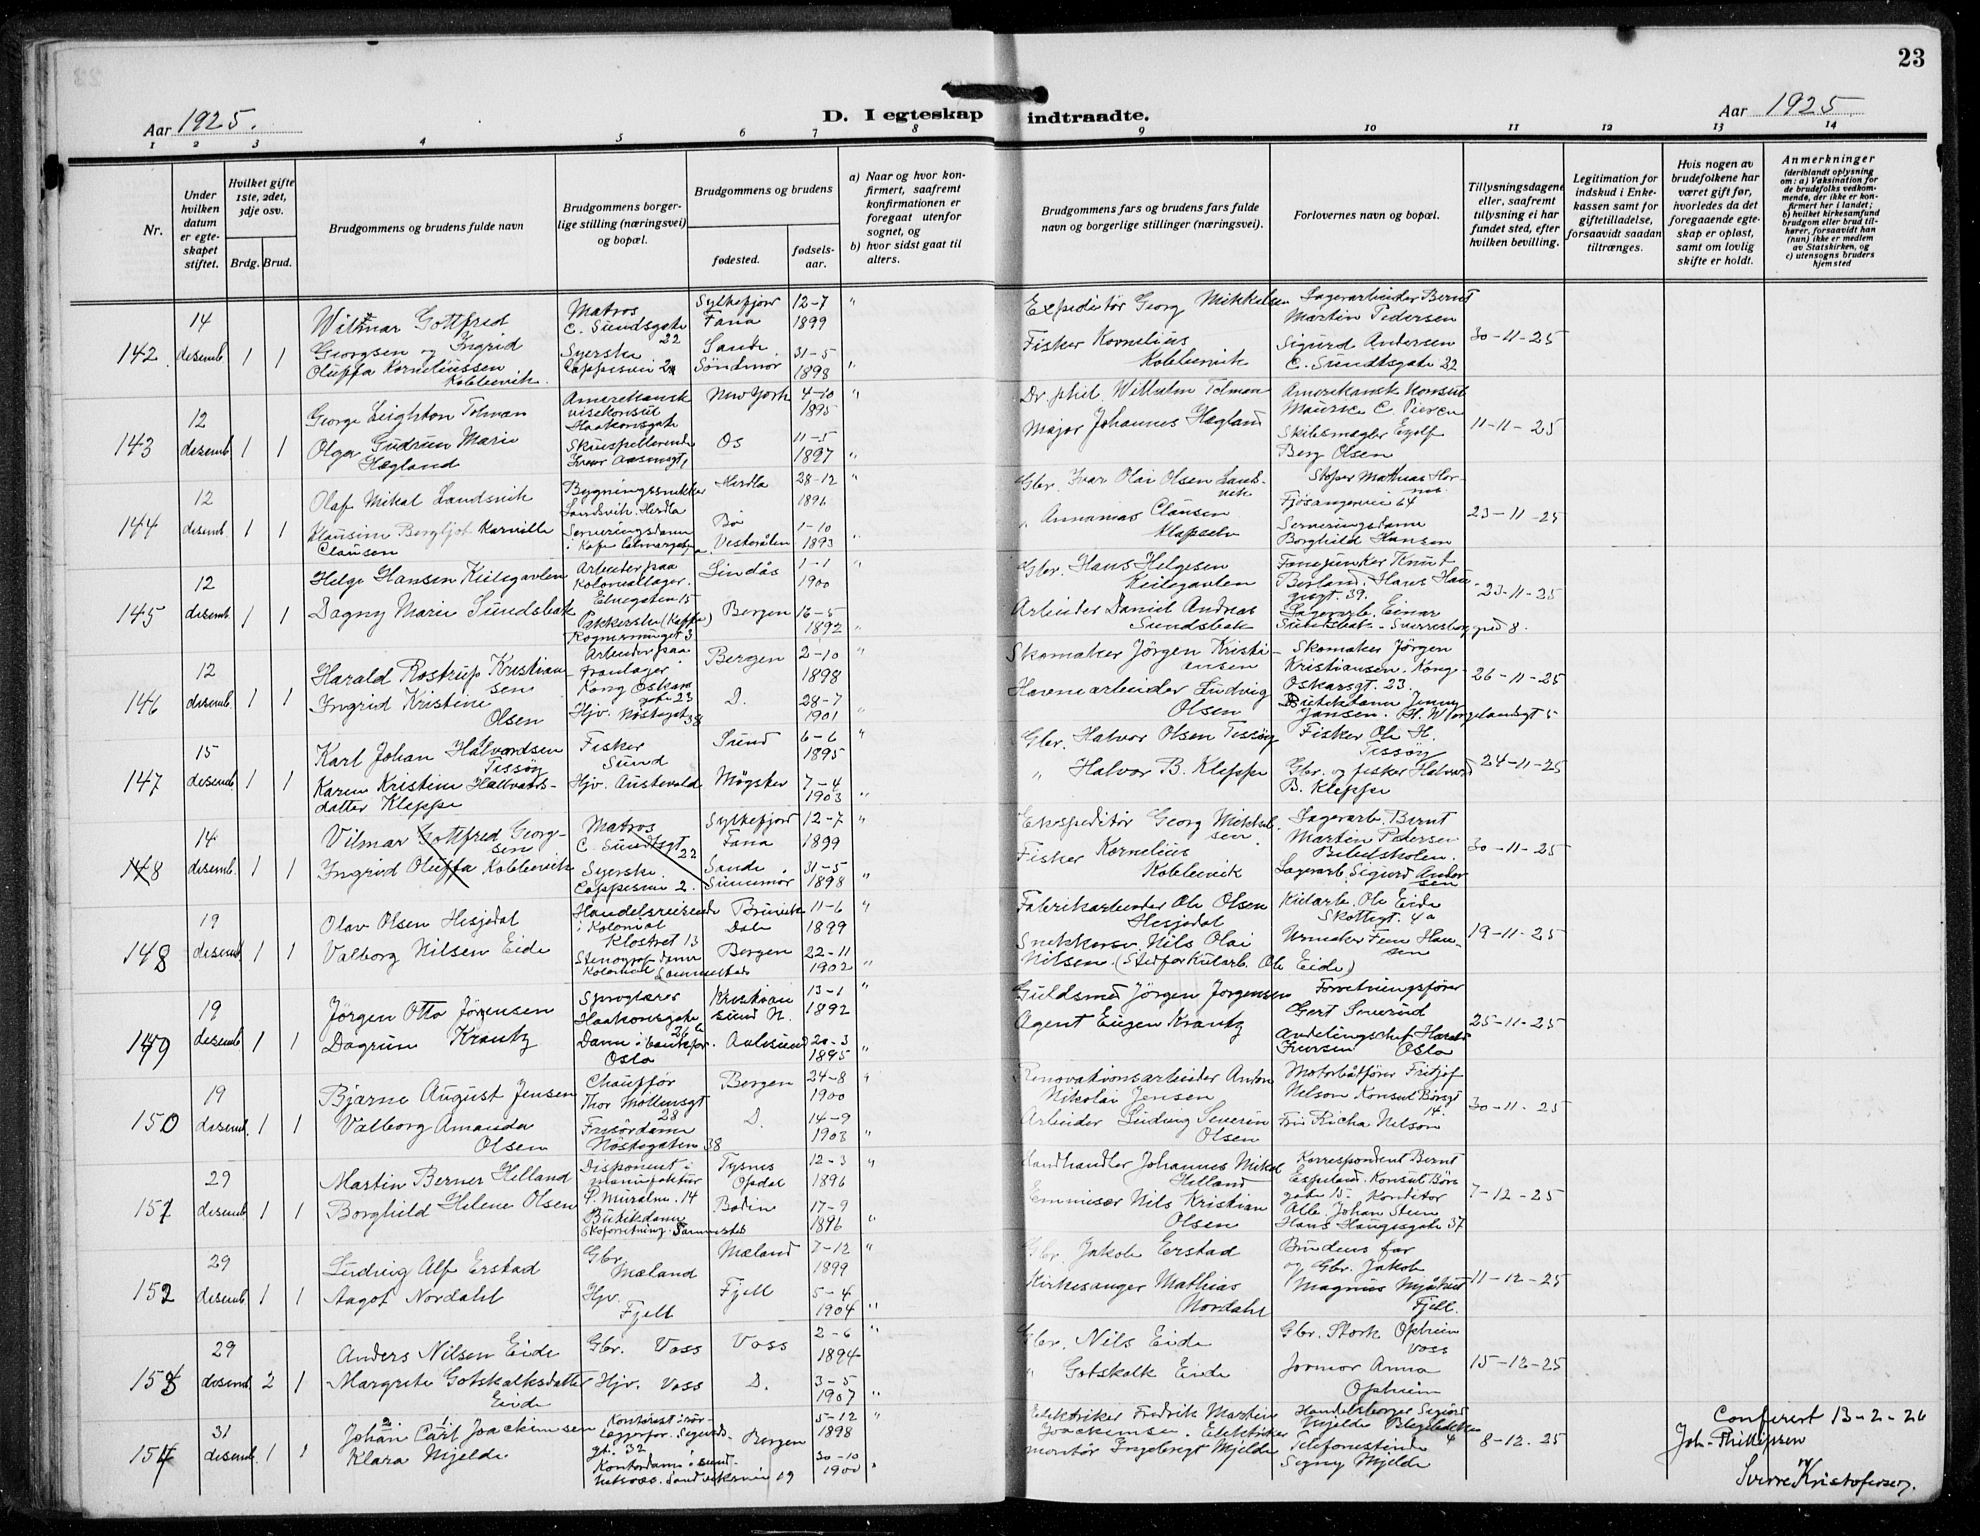 23
Aar 1925.
D. I egteskap indtraadte.
Aar 1925
1 2 3 4 5 6 7 8 9 10 11 12 13 14
Nr.
Under hvilken datum er egteskapet stiftet.
Hvilket gifte 1ste, 2det, 3dje osv.
Brdg. Brud.
Brudgommens og brudens fulde navn
Brudgommens borgerlige stilling (næringsvei) og bopæl.
Brudgommens og brudens
fødested.
fødselsaar.
a) Naar og hvor konfirmert, saafremt konfirmationen er foregaat utenfor sognet, og
b) hvor sidst gaat til alters.
Brudgommens fars og brudens fars fulde navn og borgerlige stillinger (næringsvei).
Forlovernes navn og bopæl.
Tillysningsdagene eller, saafremt tilysning ei har fundet sted, efter hvilken bevilling.
Legitimation for indskud i Enkekassen samt for giftetilladelse, forsaavidt saadan tiltrænges.
Hvis nogen av brudefolkene har været gift før, hvorledes da det foregaaende egteskap er opløst, samt om lovlig skifte er holdt.
Anmerkninger
(deriblandt oplysning om: a) Vaksination for de brudefolks vedkommende, der ikke er konfirmert her i landet; b) hvilket kirkesamfund brudgom eller brud tilhører, forsaavidt han (hun) ikke er medlem av Statskirken, og c) utensogns bruders hjemsted
142 14 desemb. 1 1
Wilmar Gottfred
Georgsen og Ingrid
Oluffa Korneliussen
Koblevik.
Matros
C. Sundsgate 22
Syerske
Cappesmi 2
Syltefjord
Fana
Sande
Søndmør
12-7 1899 "
31-5 1898 "
Expeditør Georg Mikkelsen
Fisker Kornelius
Koblevik
Lagerarbeider Bernt
Martin Pedersen
Sigurd Andersen
C. Sundtsgate 22
30-11-25
143 12 desemb 1 1
George Leighton Tolman
Olga Gudrun Marie
Hægland
Amerikansk
visekonsul
Haakonsgate
Skuespillerinde
Ivar Aasensgt,
New York
Os
4-10 1895 "
11-5 1897 "
Dr. phil. Wilhelm Tolman
Major Johannes Hægland
Amerikansk Konsul
Maurice C. Pierce
Skibsmægler Eyolf
Berg Olsen
11-11-25
144 12 desemb. 1 1
Olaf Mikal Landsvik
Klausine Bergljot Kornelie
Clausen
Bygningssnikker
Landsvik. Herdla
Serveringsdame
Herdla
Bø
Vesterålen
28-12 1896 "
1-10 1893 "
Gbr. Ivar Olai Olsen Landsvik
" Annanias Clausen
Støper Mathias
Fjøsangerveien 64
Serveringsdame
Borghild Hansen
23-11-25
145 12 desemb 1 1
Helge Hansen Keilegavlen
Dagny Marie Sundsbak
Arbeider paa
Kolonialager.
Elvegaten 15
Pakkerske (Kaffe)
Lindås
Bergen
1-1 1900 "
16-5 1892 "
Gbr. Hans Helgesen
Keilegavlen
Arbeider Daniel Andreas
Sundsbak
Fanejunker Knut
Berland. Hans Haugesgt. 39.
Lagerarb. Einar
Sundsbak. Sverresborg 8.
23-11-25
146 12 desemb. 1 1
Harald Rostrup Kristiansen
Ingrid Kristine
Olsen
Arbeider paa
Kong Oskars
gate 23
Hjv. Nøstegat. 38
Bergen
D.
2-10 1898 "
28-7 1901 "
Skomaker Jörgen Kristiansen
Havnearbeider Ludvig
Olsen
Skomaker Jörgen
Kristiansen. Kong
Oskarsgt. 23.
Butikdame Jenny
Jansen. H. Wergelandsgt 5
26-11-25
147 15 desemb 1 1
Karl Johan Halvordsen
Tissøy
Karen Kristine Hallvardsdatter Kleppe
Fisker
Sund
Hjv. Austevold
Sund
Møgster
6-6 1895 "
7-4 1903 "
Gbr. Halvor Olsen Tissöy
" Halvor B. Kleppe
Fisker Ole H.
Tissöy
Gbr. og fisker Halvard
B. Kleppe
24-11-25
148 14 desemb. 1 1
Vilmar Gottfred Georgsen
Ingrid Oluffa Koblevik
Matros
C. Sundtsgt 22
Syerske.
Cappesmi 2.
Syltefjord
Fana
Sande.
Sunnmør
12-7 1899 "
31-5 1898 "
Ekspeditör Georg Mikkelsen.
Fisker Kornelius
Koblevik
Lagerarb. Bernt
Martin Pedersen
Bibelskolen.
Lagerarb. Sigurd Andersen
30-11-25
148 19 desemb. 1 1
Olav Olsen Hesjedal
Valborg Nilsen Eide
Handelsreisende
i Kolonial
Klostret 13
Stenografdame
Kolonial Sammesteds
Bruvik
Dale
Bergen
11-6 1899 "
22-11 1902 "
Fabrikarbeider Ole Olsen
Hesjedal
Snekkersv. Nils Olai
Nilsen. (Stedfar Kularb. Ole Eide)
Kularb. Ole Eide
Skottegt. 4a
Urmaker Fem Hansen
19-11-25
149 19 desemb. 1 1
Jörgen Otto Jörgensen
Dagrun Krantz
Sproglærer
Haakonsgate 26b
Oslo
Kristiansund N.
Aalesund
13-1 1892 "
20-3 1895 "
Guldsmed Jörgen Jorgensen
Agent Eugen Krantz
Forretningsfører
Gert Severud
Avdelingschef Harald
Iversen Oslo
25-11-25
150 19 desemb. 1 1
Bjarne August Jensen
Valborg Amanda
Olsen
Chauffør
Thor Möllensgt 28
Frisördame
Nöstegaten 38
Bergen
D.
24-8 1900 "
14-9 1903 "
Renovationsarbeider Anton
Nikolai Jensen
Arbeider Ludvig Severin
Olsen
Motorbåtfører Fritjof
Nelson Konsul Børsgt 14.
Frü Richa Nelson
30-11-25
151 29 desemb 1 1
Martin Berner Helland
Borghild Helene Olsen
Disponent i
manufaktur
P. Muralm. 14
Butikdame
Skoforretning. Sammesteds
Tysnes
Opdal
Bodin
12-3 1896 "
17-9 1896 "
Landhandler Johannes Mikal
Helland
Emmisær Nils Kristian
Olsen
Korrespondent Bernt
Espeland. Konsul Børs
gate 15. Konditor
Alb. Johan Steen
Hans Haugesgate 37
7-12-25
152 29 desemb 1 1
Ludvig Alf Erstad
Aagot Nordahl
Gbr.
Mæland
Hjv.
Fjell
Mæland
Fjell
7-12 1899 "
5-4 1904 "
Gbr. Jakob Erstad
Kirkesanger Mathias
Nordahl
Brudens far
og Gbr. Jakob
Magnus
Fjell.
11-12-25
153 29 desemb 2 1
Anders Nilsen Eide
Margrete Gotskalksdatter
Eide
Gbr. Voss
Hjv. Voss
Voss
D.
2-6 1894 "
3-5 1907 "
Gbr. Nils Eide
" Gotskalk Eide
Gbr. Stork Opheim
Voss
Jormor Anna
Opheim
15-12-25
154 31 desemb. 1 1
Johan Carl Joackimsen
2 1
Klara Mjelde
Kontorist i rör-
leggerfor. Sigurdsgt. 32
Kontordame i
Sandviksvei 19
Bergen
5-12 1898 "
30-10 1900 "
Elektriker Fredrik Martin
Joackimsen. Elektriker
montör Ingebrigt Mjelde
Handelsborger Sigurd
Mjelde
Telefonistinde
Signy Mjelde
8-12-25
Conferert 13-2-26
Joh. Phillipsen
Sverre Kristofersen.